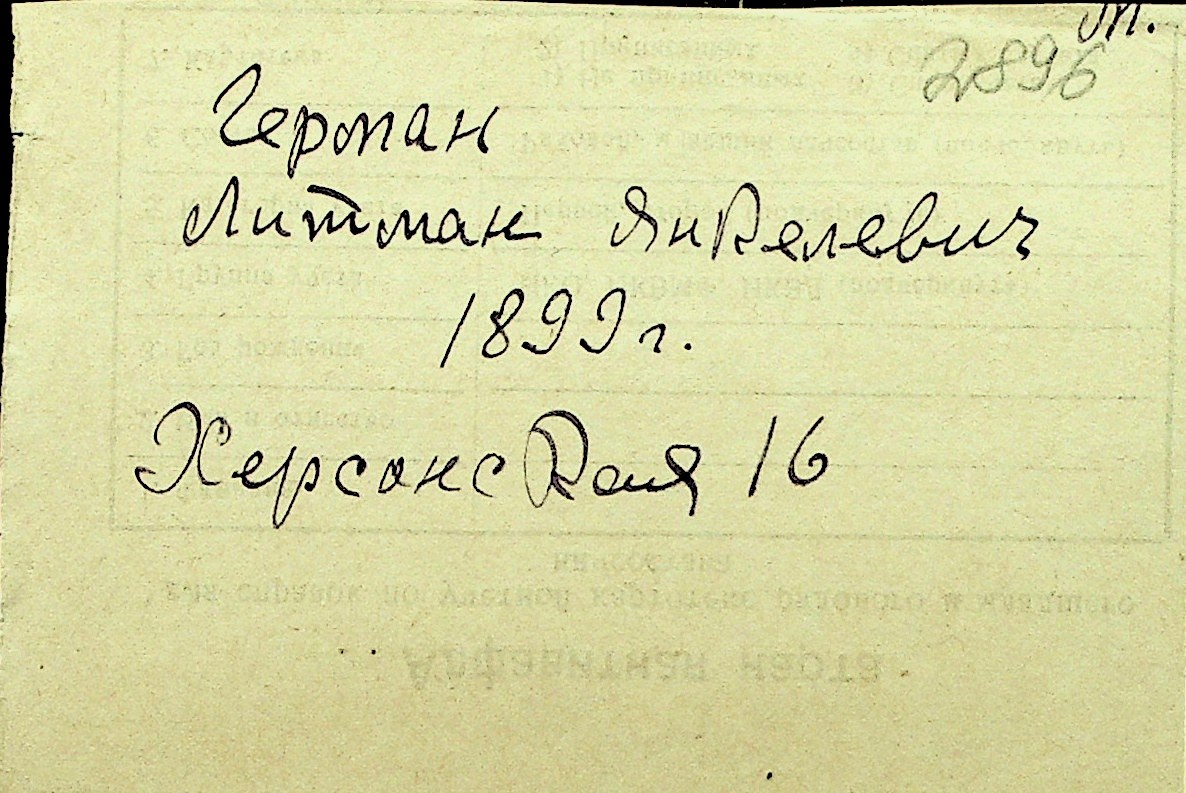 т.
2896
Герман
Литман Янкелевич
1899 г.
Херсонская 16